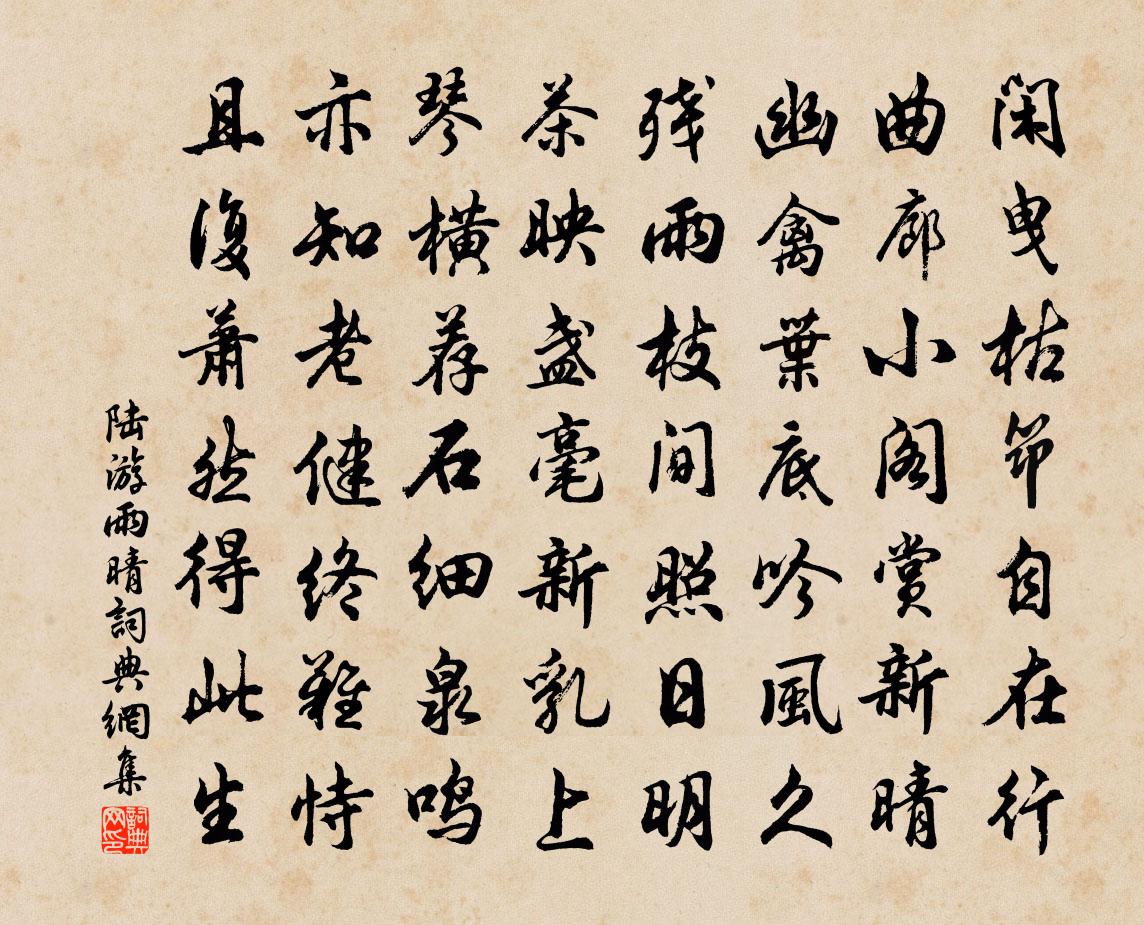 闲曳枯筇自在行
曲廊小阁赏新晴
幽禽葉底吟風久
残雨枝间照日明
茶映盏毫新乳上
琴横荐石细泉鸣
亦知老健终難恃
且復蕭然得此生
陆游雨晴詞典網集
詞典网印